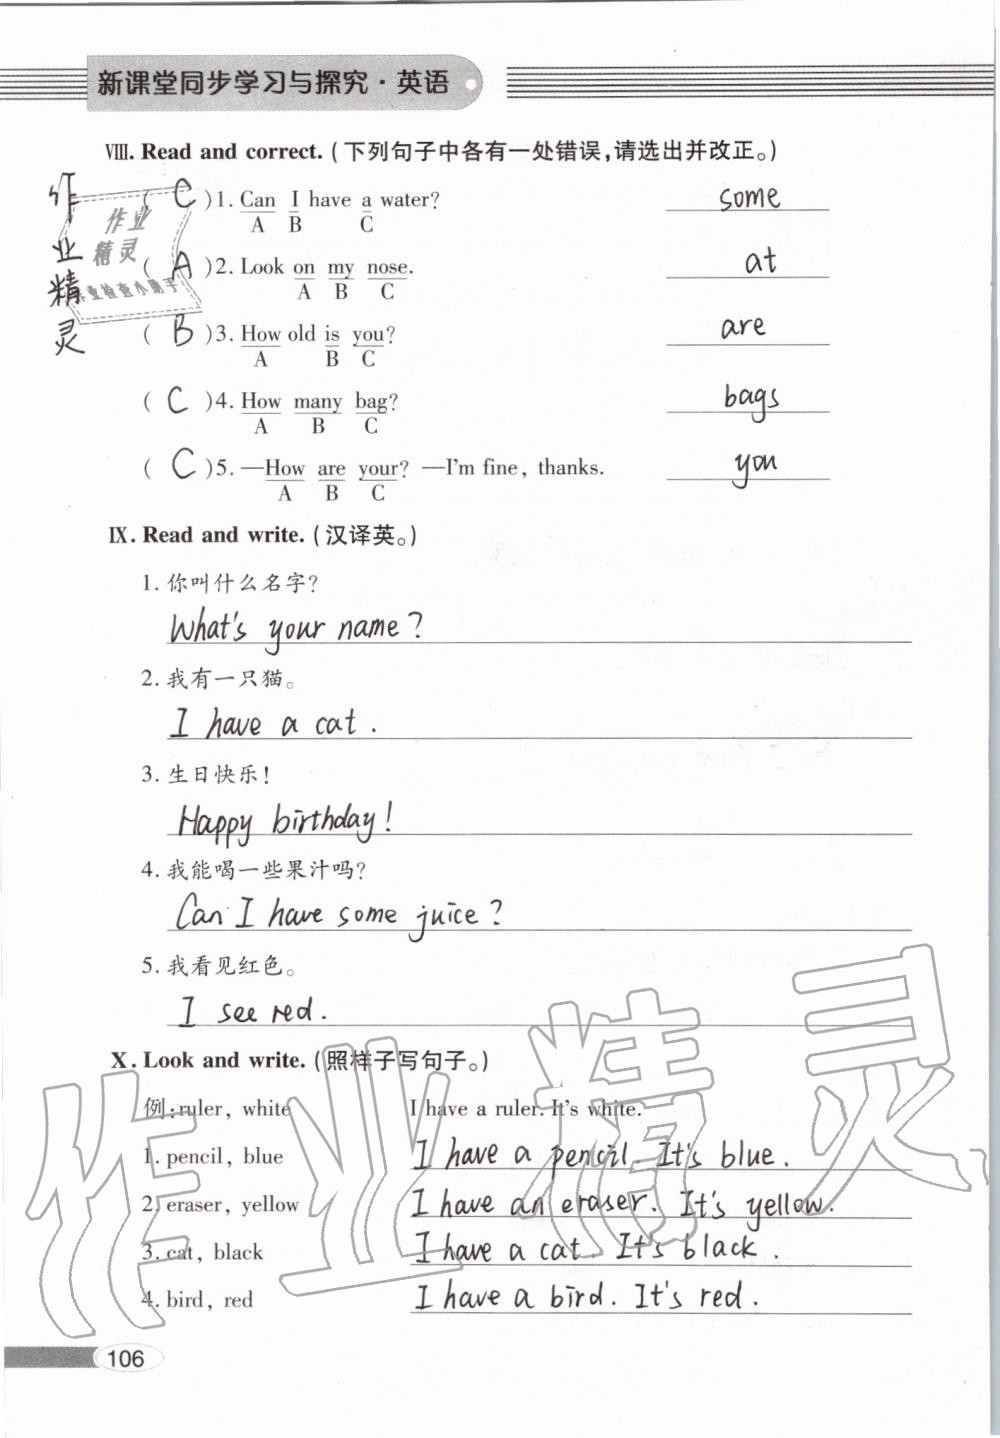 新课堂同步学习与探究·英语
Ⅷ. Read and correct. (下列句子中各有一处错误,请选出并改正。)
( C )1. Can I have a water? some
A B C
( A )2. Look on my nose. at
A B C
( B )3. How old is you? are
A B C
( C )4. How many bag? bags
A B C
( C )5. —How are your? —I'm fine, thanks. you
A B C
Ⅸ. Read and write. (汉译英。)
1. 你叫什么名字?
What's your name?
2. 我有一只猫。
I have a cat.
3. 生日快乐!
Happy birthday!
4. 我能喝一些果汁吗?
Can I have some juice?
5. 我看见红色。
I see red.
Ⅹ. Look and write. (照样子写句子。)
例: ruler, white I have a ruler. It's white.
1. pencil, blue I have a pencil. It's blue.
2. eraser, yellow I have an eraser. It's yellow.
3. cat, black I have a cat. It's black.
4. bird, red I have a bird. It's red.
106
作业精灵
作业
精灵
作业检查小助手
作业精灵